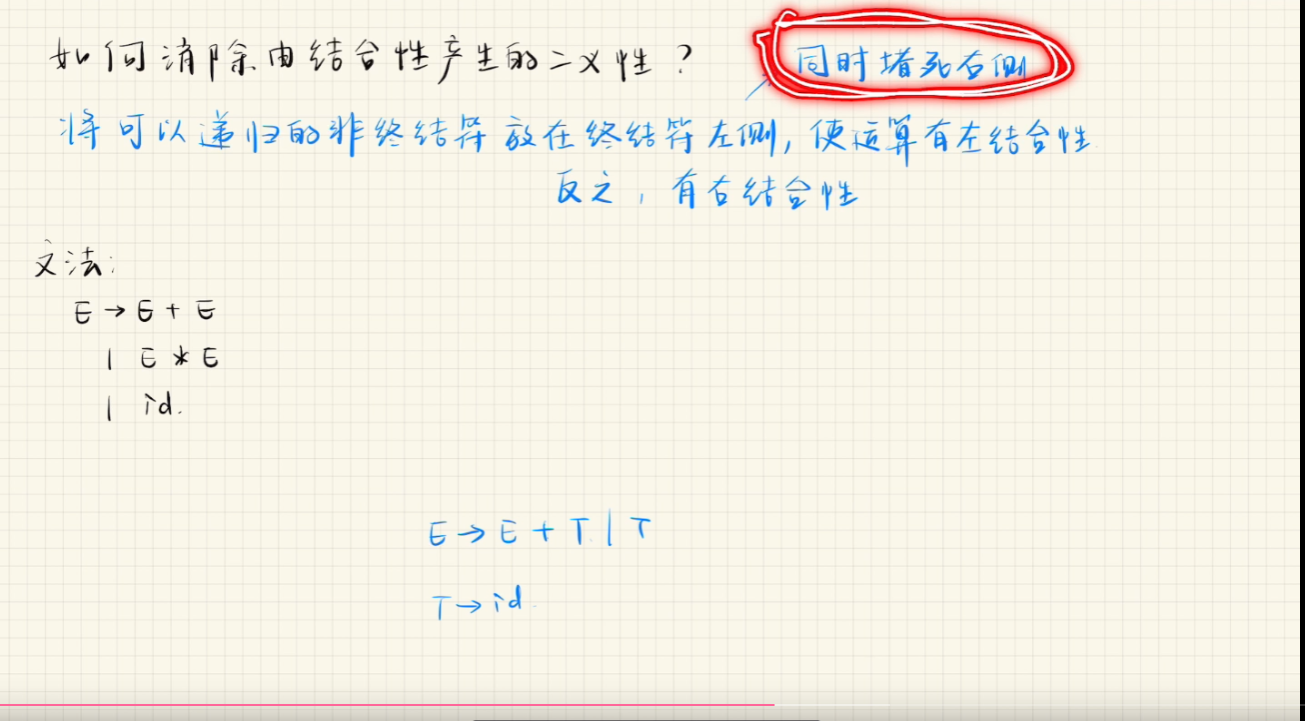 如何消除由结合性产生的二义性？
同时堵死右侧
将可以递归的非终结符放在终结符左侧，使运算有左结合性
反之，有右结合性
文法：
E → E + E
| E * E
| id.
E → E + T | T
T → id.